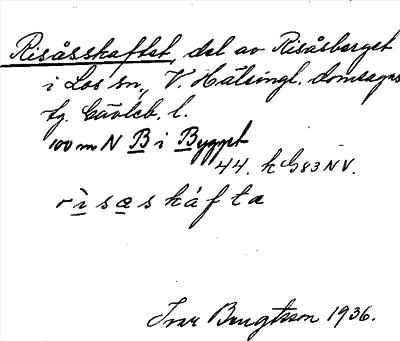 Risåsskaftet, del av Risåsberget
i Los sn., V. Hälsingl. domsagas
tg. Gävleb. l.
100 m N B i Bygget
44. k G83 NV.
rìsəskáfta
Ivar Bengtsson 1936.